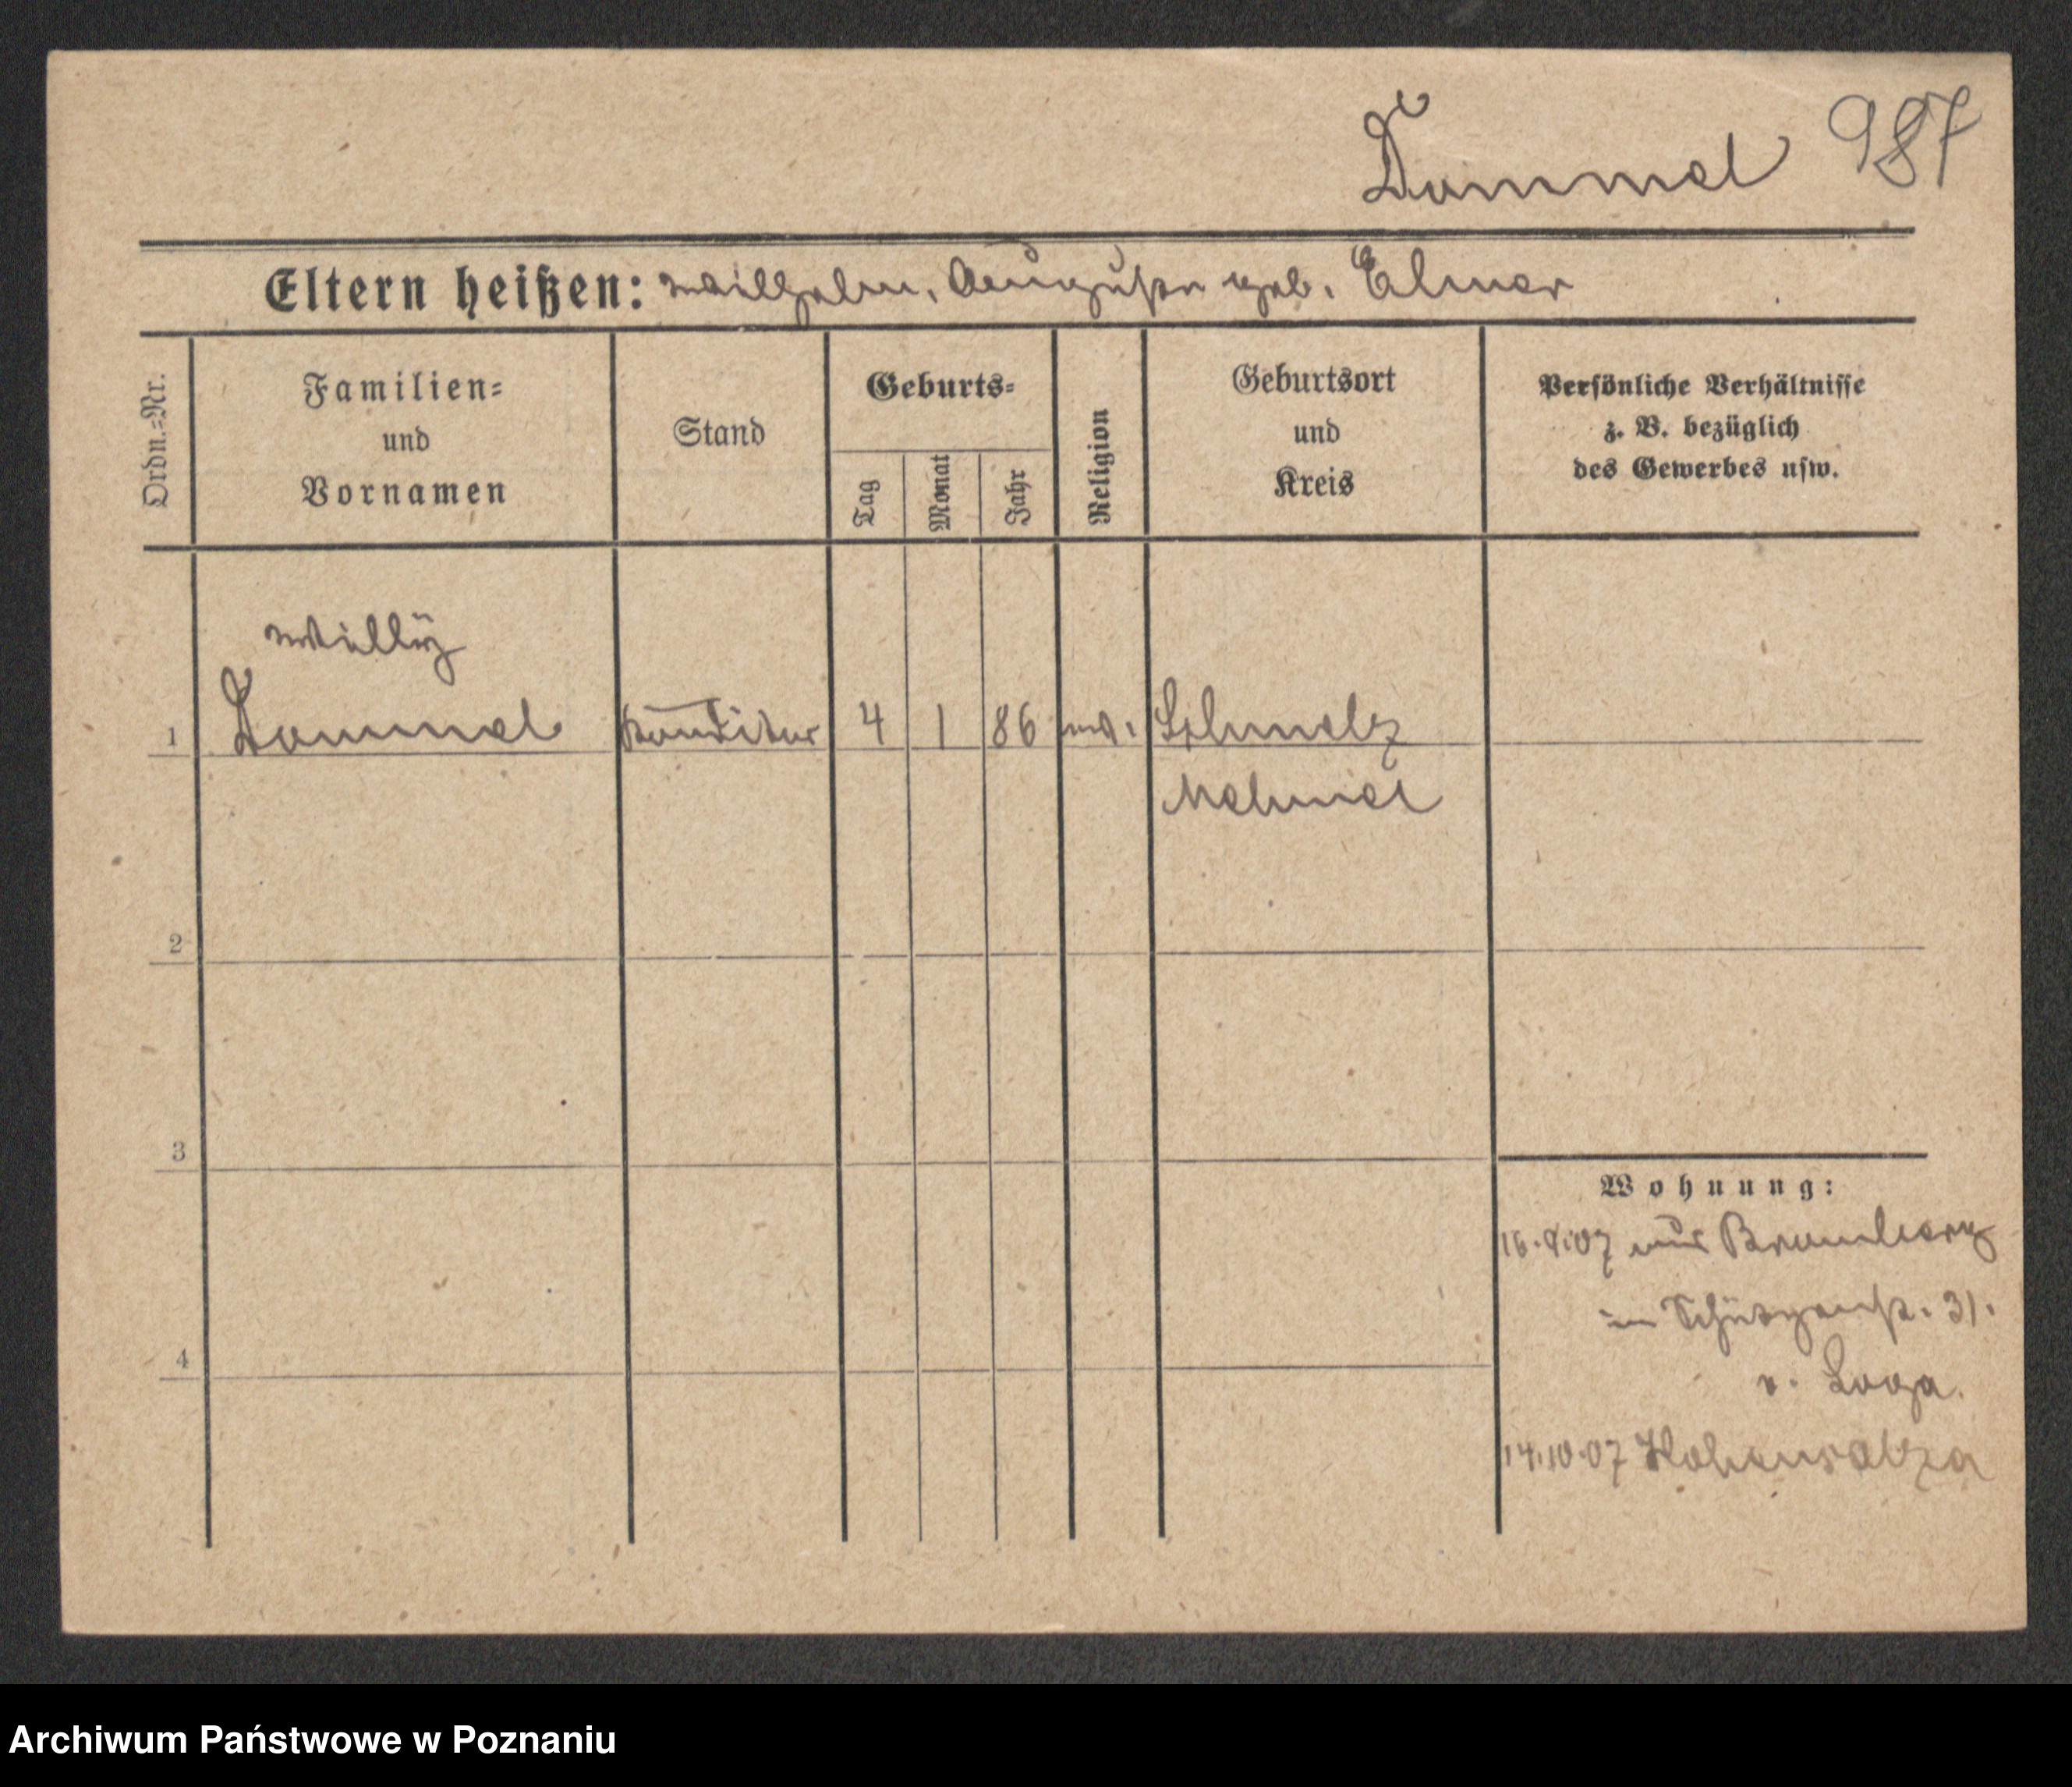 Dummel 987
Eltern heißen: Wilhelm, Auguste geb. Elmer
Ordn.-Nr.
Familien-
und
Vornamen
Stand
Geburts-
Tag
Monat
Jahr
Religion
Geburtsort
und
Kreis
Persönliche Verhältnisse
z. B. bezüglich
des Gewerbes usw.
Willÿ
1 Dummel Konditor 4 1 86 Schmelz
Memel
2
3
4
Wohnung:
16.9.07 aus Bromberg
in 31.
v. Loga.
14.10.07 Hohensalza
Archiwum Państwowe w Poznaniu